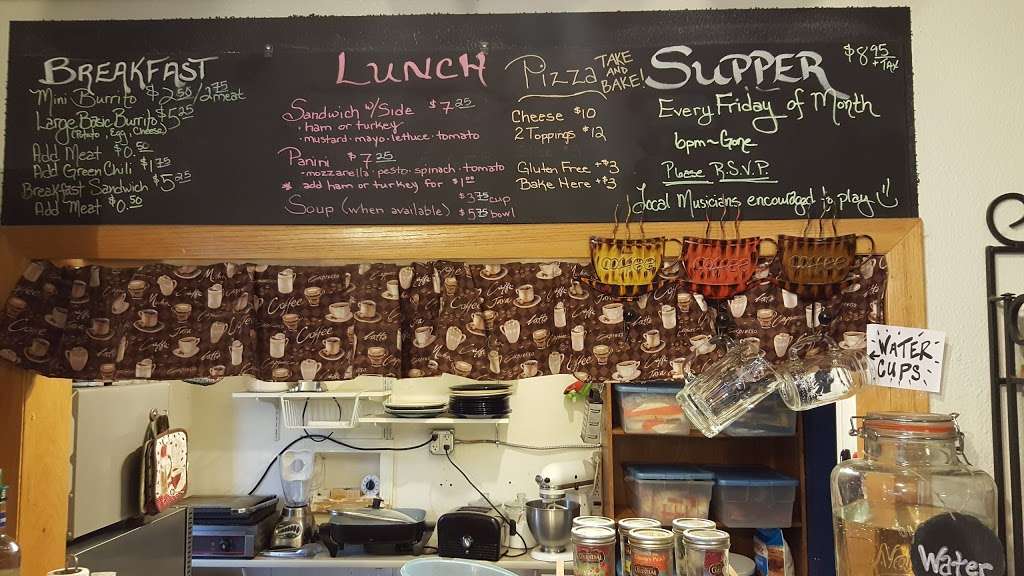 BREAKFAST
Mini Burrito $2.50 / 2.75 meat
Large Basic Burrito $5.25
(Potato, Egg, Cheese)
Add Meat $0.50
Add Green Chili $1.75
Breakfast Sandwich $5.25
Add Meat $0.50
LUNCH
Sandwich w/Side $7.25
• ham or turkey
• mustard • mayo • lettuce • tomato
Panini $7.25
- mozzarella • pesto • spinach • tomato
* add ham or turkey for $1.00
Soup (when available) $3.75 cup
$5.75 bowl
Pizza TAKE AND BAKE!
Cheese $10
2 Toppings $12
Gluten Free +$3
Bake Here +$3
SUPPER $8.95 + TAX
Every Friday of Month
6pm ~ Gone
Please R.S.V.P.
Local Musicians encouraged to play
COFFEE
COFFEE
COFFEE
Coffee
Coffee
Java
WATER CUPS
Water